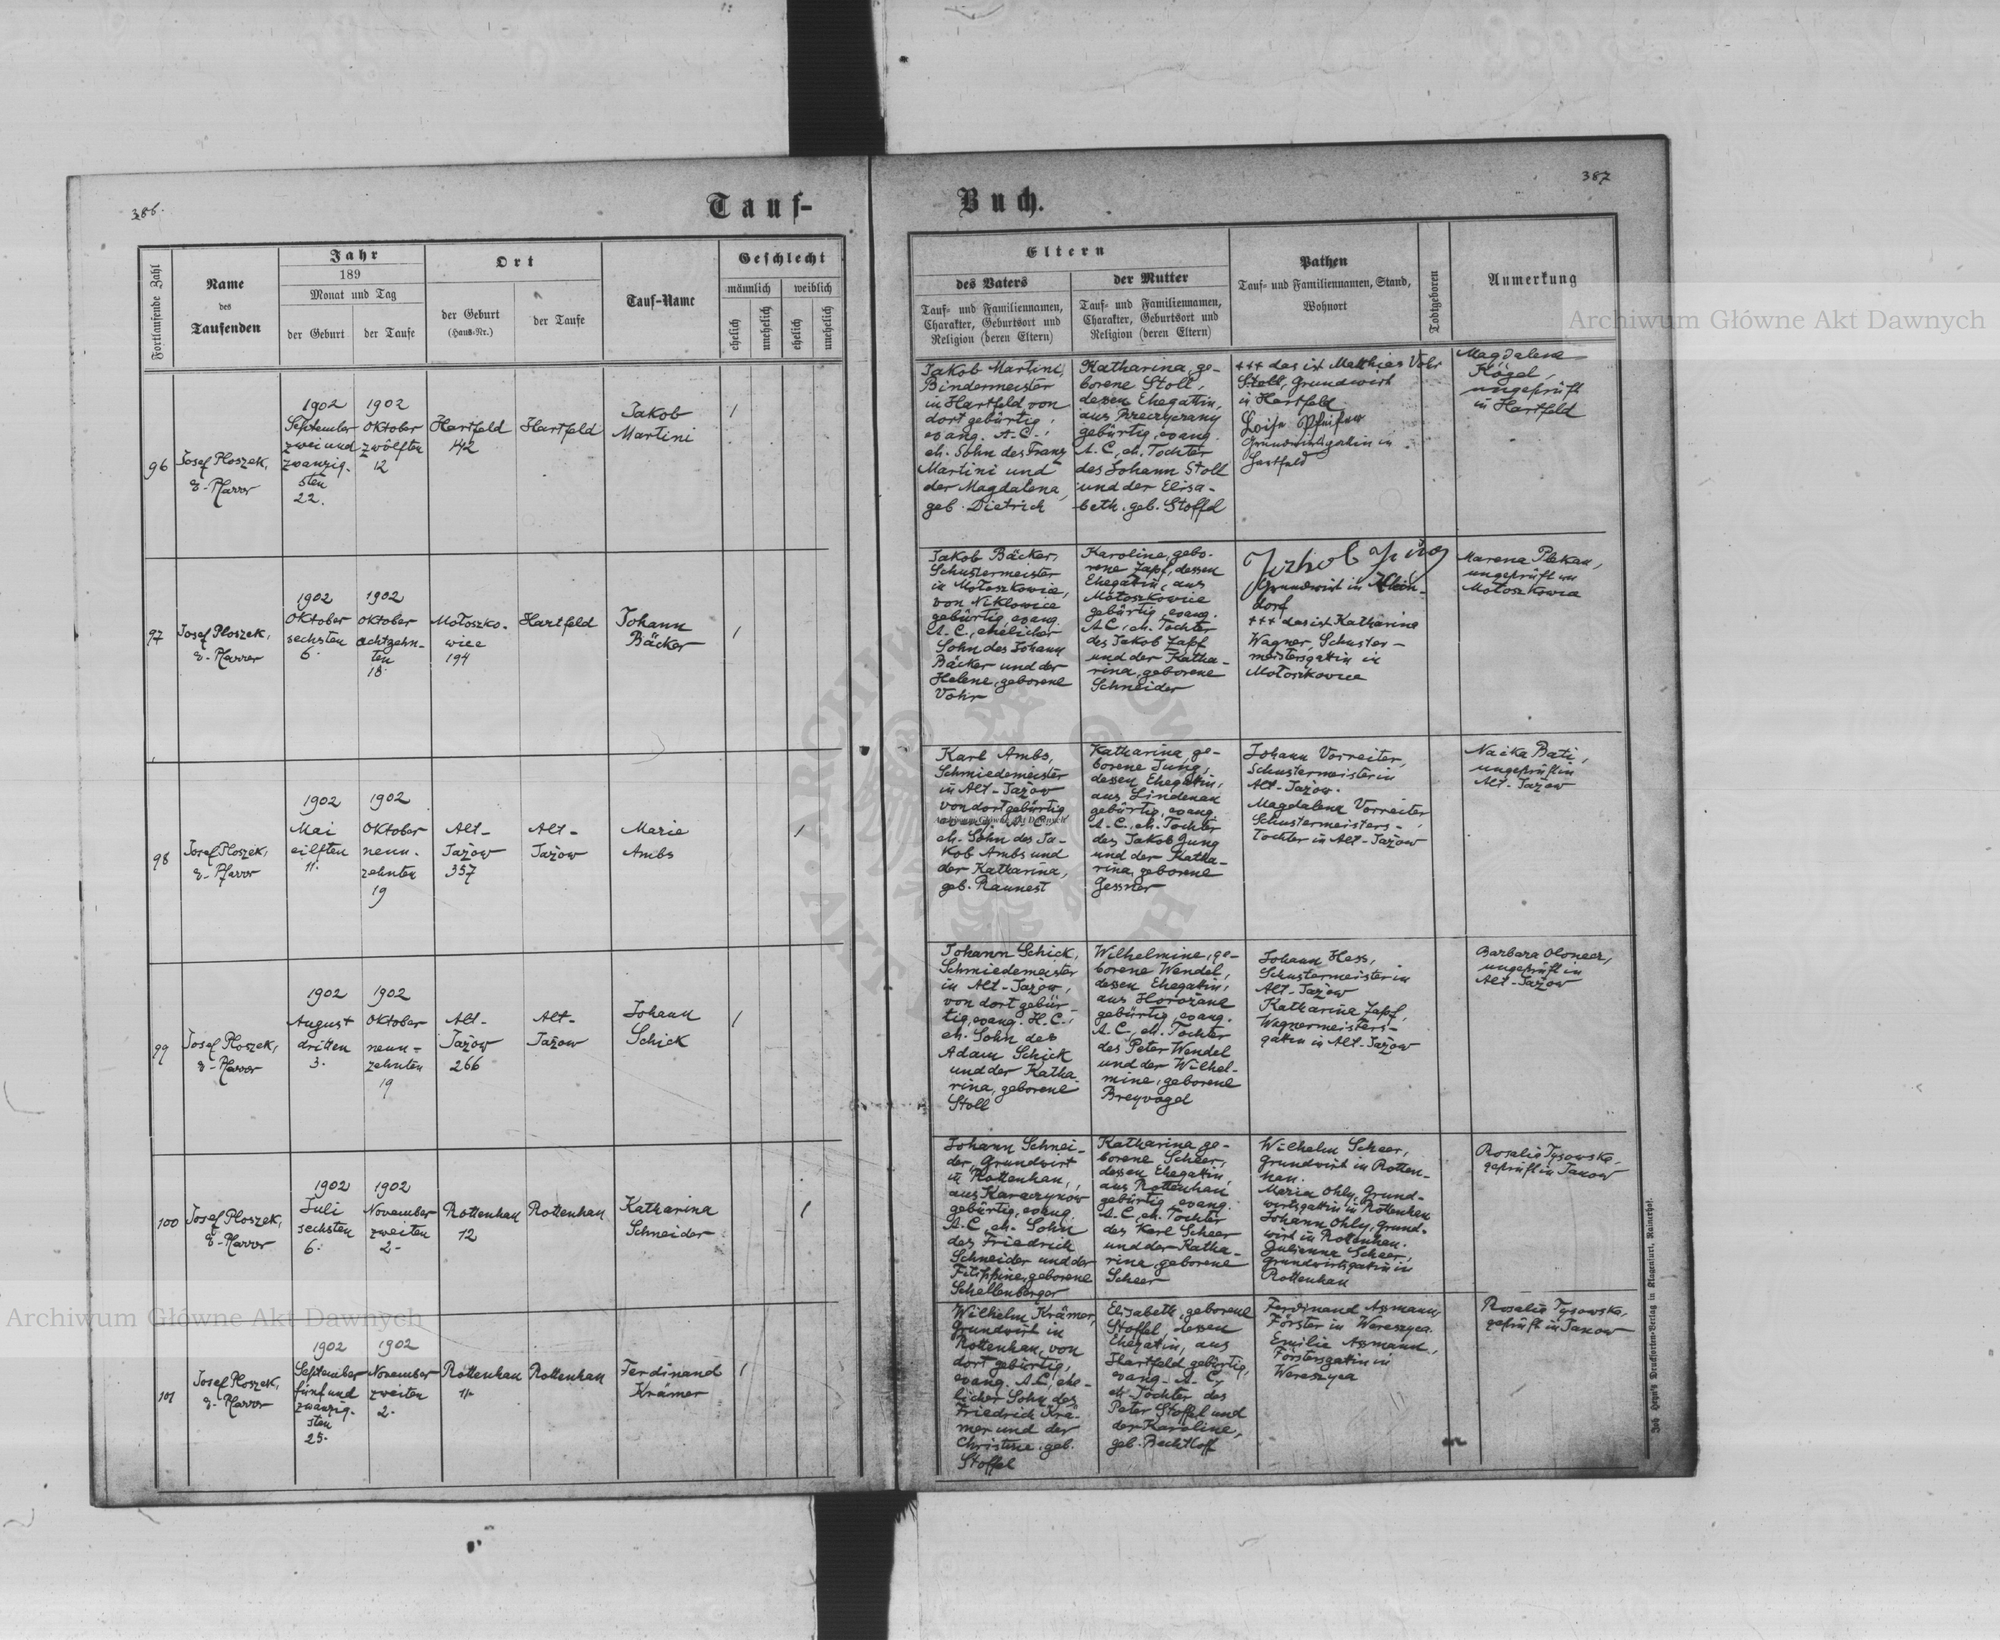 386.
Tauf-
Fortlaufende Zahl
Name
des
Taufenden
Jahr
189
Monat und Tag
der Geburt
der Taufe
Ort
der Geburt
(Haus-Nr.)
der Taufe
Tauf-Name
Geschlecht
männlich
weiblich
ehelich
unehelich
ehelich
unehelich
96
Josef Ploszek,
e. Pfarrer
1902
September
zwei und
zwanzig-
sten
22.
1902
Oktober
zwölften
12
Hartfeld
142
Hartfeld
Jakob
Martini
97
Josef Ploszek,
e. Pfarrer
1902
Oktober
sechsten
6.
1902
Oktober
achtzehn-
ten
18.
Mołoszko-
wice
194
Hartfeld
Johann
Bäcker
98
Josef Ploszek,
e. Pfarrer
1902
Mai
eilften
11.
1902
Oktober
neun-
zehnten
19
Alt-
Jażow
357
Alt-
Jażow
Marie
Ambs
99
Josef Ploszek,
e. Pfarrer
1902
August
dritten
3.
1902
Oktober
neun-
zehnten
19
Alt-
Jażow
266
Alt-
Jażow
Johann
Schick
100
Josef Ploszek,
e. Pfarrer
1902
Juli
sechsten
6.
1902
November
zweiten
2.
Rottenhan
12
Rottenhan
Katharina
Schneider
101
Josef Ploszek,
e. Pfarrer
1902
September
fünfund
zwanzig-
sten
25.
1902
November
zweiten
2.
Rottenhan
Rottenhan
Ferdinand
Krämer
387
Buch.
Eltern
des Vaters
Tauf- und Familiennamen,
Charakter, Geburtsort und
Religion (deren Eltern)
der Mutter
Tauf- und Familiennamen,
Charakter, Geburtsort und
Religion (deren Eltern)
Pathen
Tauf- und Familiennamen, Stand,
Wohnort
Todtgeboren
Anmerkung
Jakob Martini,
Bindermeister
in Hartfeld, von
dort gebürtig,
evang. A. C.,
eh. Sohn des Franz
Martini und
der Magdalena,
geb. Dietrich
Katharina, ge-
borene Stoll,
dessen Ehegattin,
aus Przeczyczany
gebürtig, evang.
A. C., eh. Tochter
des Johann Stoll
und der Elisa-
beth, geb. Stoffel
+++ das ist Matthias Vohr
Stoll, Grundwirt
in Hartfeld
Loise Pfeifer
Grundwirtsgattin in
Hartfeld
Magdalena
Kögel,
ungeprüft
in Hartfeld
Jakob Bäcker,
Schustermeister
in Mołoszkowice,
von Niklowice
gebürtig, evang.
A. C., ehelicher
Sohn des Johann
Bäcker und der
Helene, geborene
Vohr
Karoline, gebo-
rene Zapf, dessen
Ehegattin, aus
Mołoszkowice
gebürtig, evang.
A. C., eh. Tochter
des Jakob Zapf
und der Katha-
rina, geborene
Schneider
Jakob
Grundwirt in Klein-
dorf
+++ das ist Katharina
Wagner, Schuster-
meistersgattin in
Mołoszkowice
Marena Plekan,
ungeprüft in
Mołoszkowice
Karl Ambs,
Schmiedemeister
in Alt-Jażow
von dort gebürtig
eh. Sohn des Ja-
kob Ambs und
der Katharina,
geb. Raunest
Katharina, ge-
borene Jung,
dessen Ehegattin,
aus Lindenau
gebürtig, evang.
A. C., eh. Tochter
des Jakob Jung
und der Katha-
rina, geborene
Gessner
Johann Vorreiter,
Schustermeister in
Alt-Jażow.
Magdalena Vorreiter
Schustermeisters-
Tochter in Alt-Jażow
Nacka Bati,
ungeprüft in
Alt-Jażow
Johann Schick,
Schmiedemeister
in Alt-Jazow,
von dort gebür-
tig, evang. H. C.,
eh. Sohn des
Adam Schick
und der Katha-
rina, geborene
Stoll
Wilhelmine, ge-
borene Wendel,
dessen Ehegattin,
aus Horożana
gebürtig, evang.
A. C., eh. Tochter
des Peter Wendel
und der Wilhel-
mine, geborene
Breyvogel
Johann Hess,
Schustermeister in
Alt-Jażow
Katharina Zapf,
Wagnermeisters-
gattin in Alt-Jażow
Barbara
ungeprüft in
Alt-Jażow
Johann Schnei-
der, Grundwirt
in Rottenhan,
aus Karaczynów
gebürtig, evang.
A. C., eh. Sohn
des Friedrich
Schneider und der
Filippine, geborene
Schellenberger
Katharina, ge-
borene Scheer,
dessen Ehegattin,
aus Rottenhan
gebürtig, evang.
A. C., eh. Tochter
des Karl Scheer
und der Katha-
rina, geborene
Scheer
Wilhelm Scheer,
Grundwirt in Rotten-
han.
Maria Ohly, Grund-
wirtsgattin in Rottenhan
Johann Ohly, Grund-
wirt in Rottenhan.
Julienna Scheer,
Grundwirtsgattin in
Rottenhan
Rosalia Tysowska,
geprüft in Janow
Wilhelm Krämer,
Grundwirt in
Rottenhan, von
dort gebürtig,
evang. A. C., ehe-
licher Sohn des
Friedrich Krä-
mer und der
Christine, geb.
Stoffel
Elisabeth, geborene
Stoffel, dessen
Ehegattin, aus
Hartfeld gebürtig,
evang. A. C.,
eh. Tochter des
Peter Stoffel und
der Karoline,
geb. Bechtloff
Ferdinand Assmann
Förster in Wereszyca.
Emilie Assmann,
Förstersgattin in
Wereszyca
Rosalia Tysowska,
geprüft in Janow
Joh. Heyn's Drucksorten-Verlag in Klagenfurt, Rainerhof.
Archiwum Główne Akt Dawnych
Archiwum Główne Akt Dawnych
Archiwum Główne Akt Dawnych